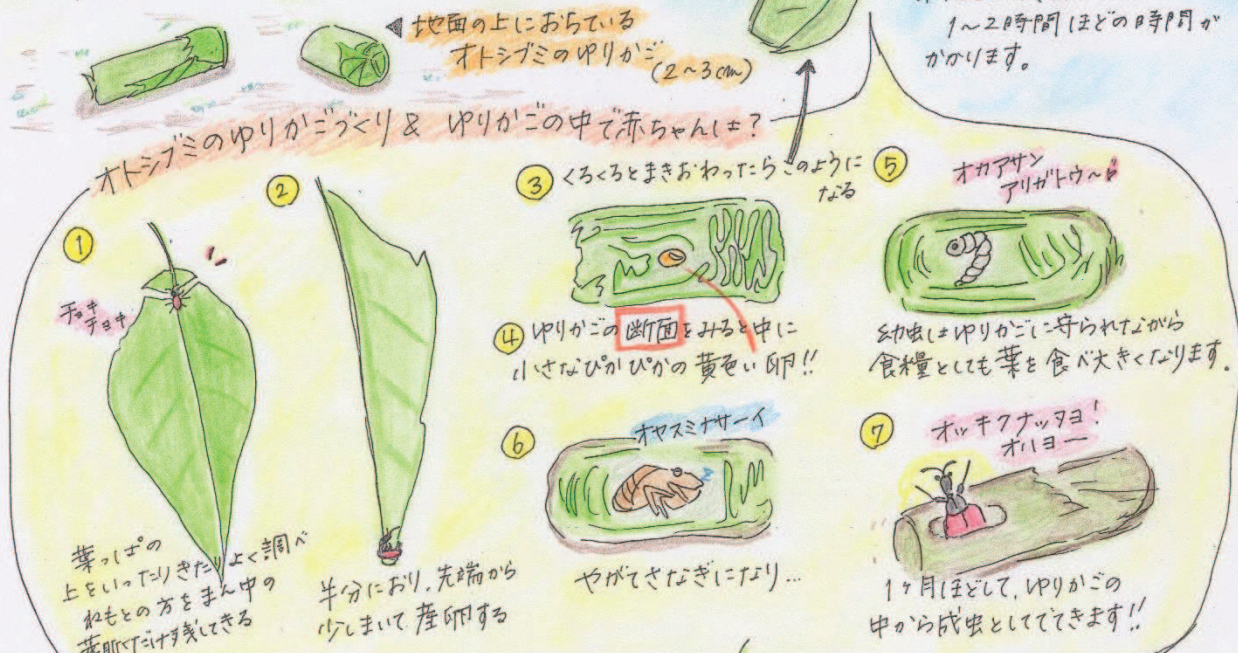 地面の上におちている
オトシブミのゆりかご
(2~3cm)
1~2時間ほどの時間が
かかります。
オトシブミのゆりかごづくり & ゆりかごの中で赤ちゃんは?
①
チョキ
チョキ
葉っぱの
上をいったりきたりよく調べ
ねもとの方をまん中の
葉脈だけ残してきる
②
半分におり、先端から
少しまいて産卵する
③ くるくるとまきおわったらこのように
なる
④ ゆりかごの断面をみると中に
小さなぴかぴかの黄色い卵!!
⑤
オカアサン
アリガトウ〜
幼虫はゆりかごに守られながら
食糧としても葉を食べ大きくなります。
⑥
オヤスミナサーイ
やがてさなぎになり...
⑦
オッキクナッタヨ!
オハヨー
1ヶ月ほどして、ゆりかごの
中から成虫としてでてきます!!